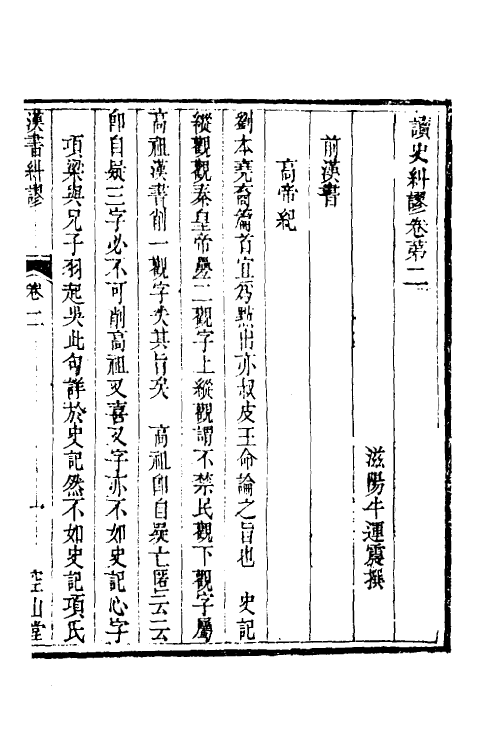 讀史糾謬卷第二
滋陽牛運震撰
前漢書
高帝紀
劉本堯裔篇首宜為點出亦叔皮王命論之旨也　史記
縱觀觀秦皇帝疊二觀字上縱觀謂不禁民觀下觀字屬
高祖漢書削一觀字失其旨矣　高祖即自疑亡匿云云
即自疑三字必不可削高祖又喜又字亦不如史記心字
項梁與兄子羽起吳此句詳於史記然不如史記項氏
漢書糾謬
卷二
一
空山堂